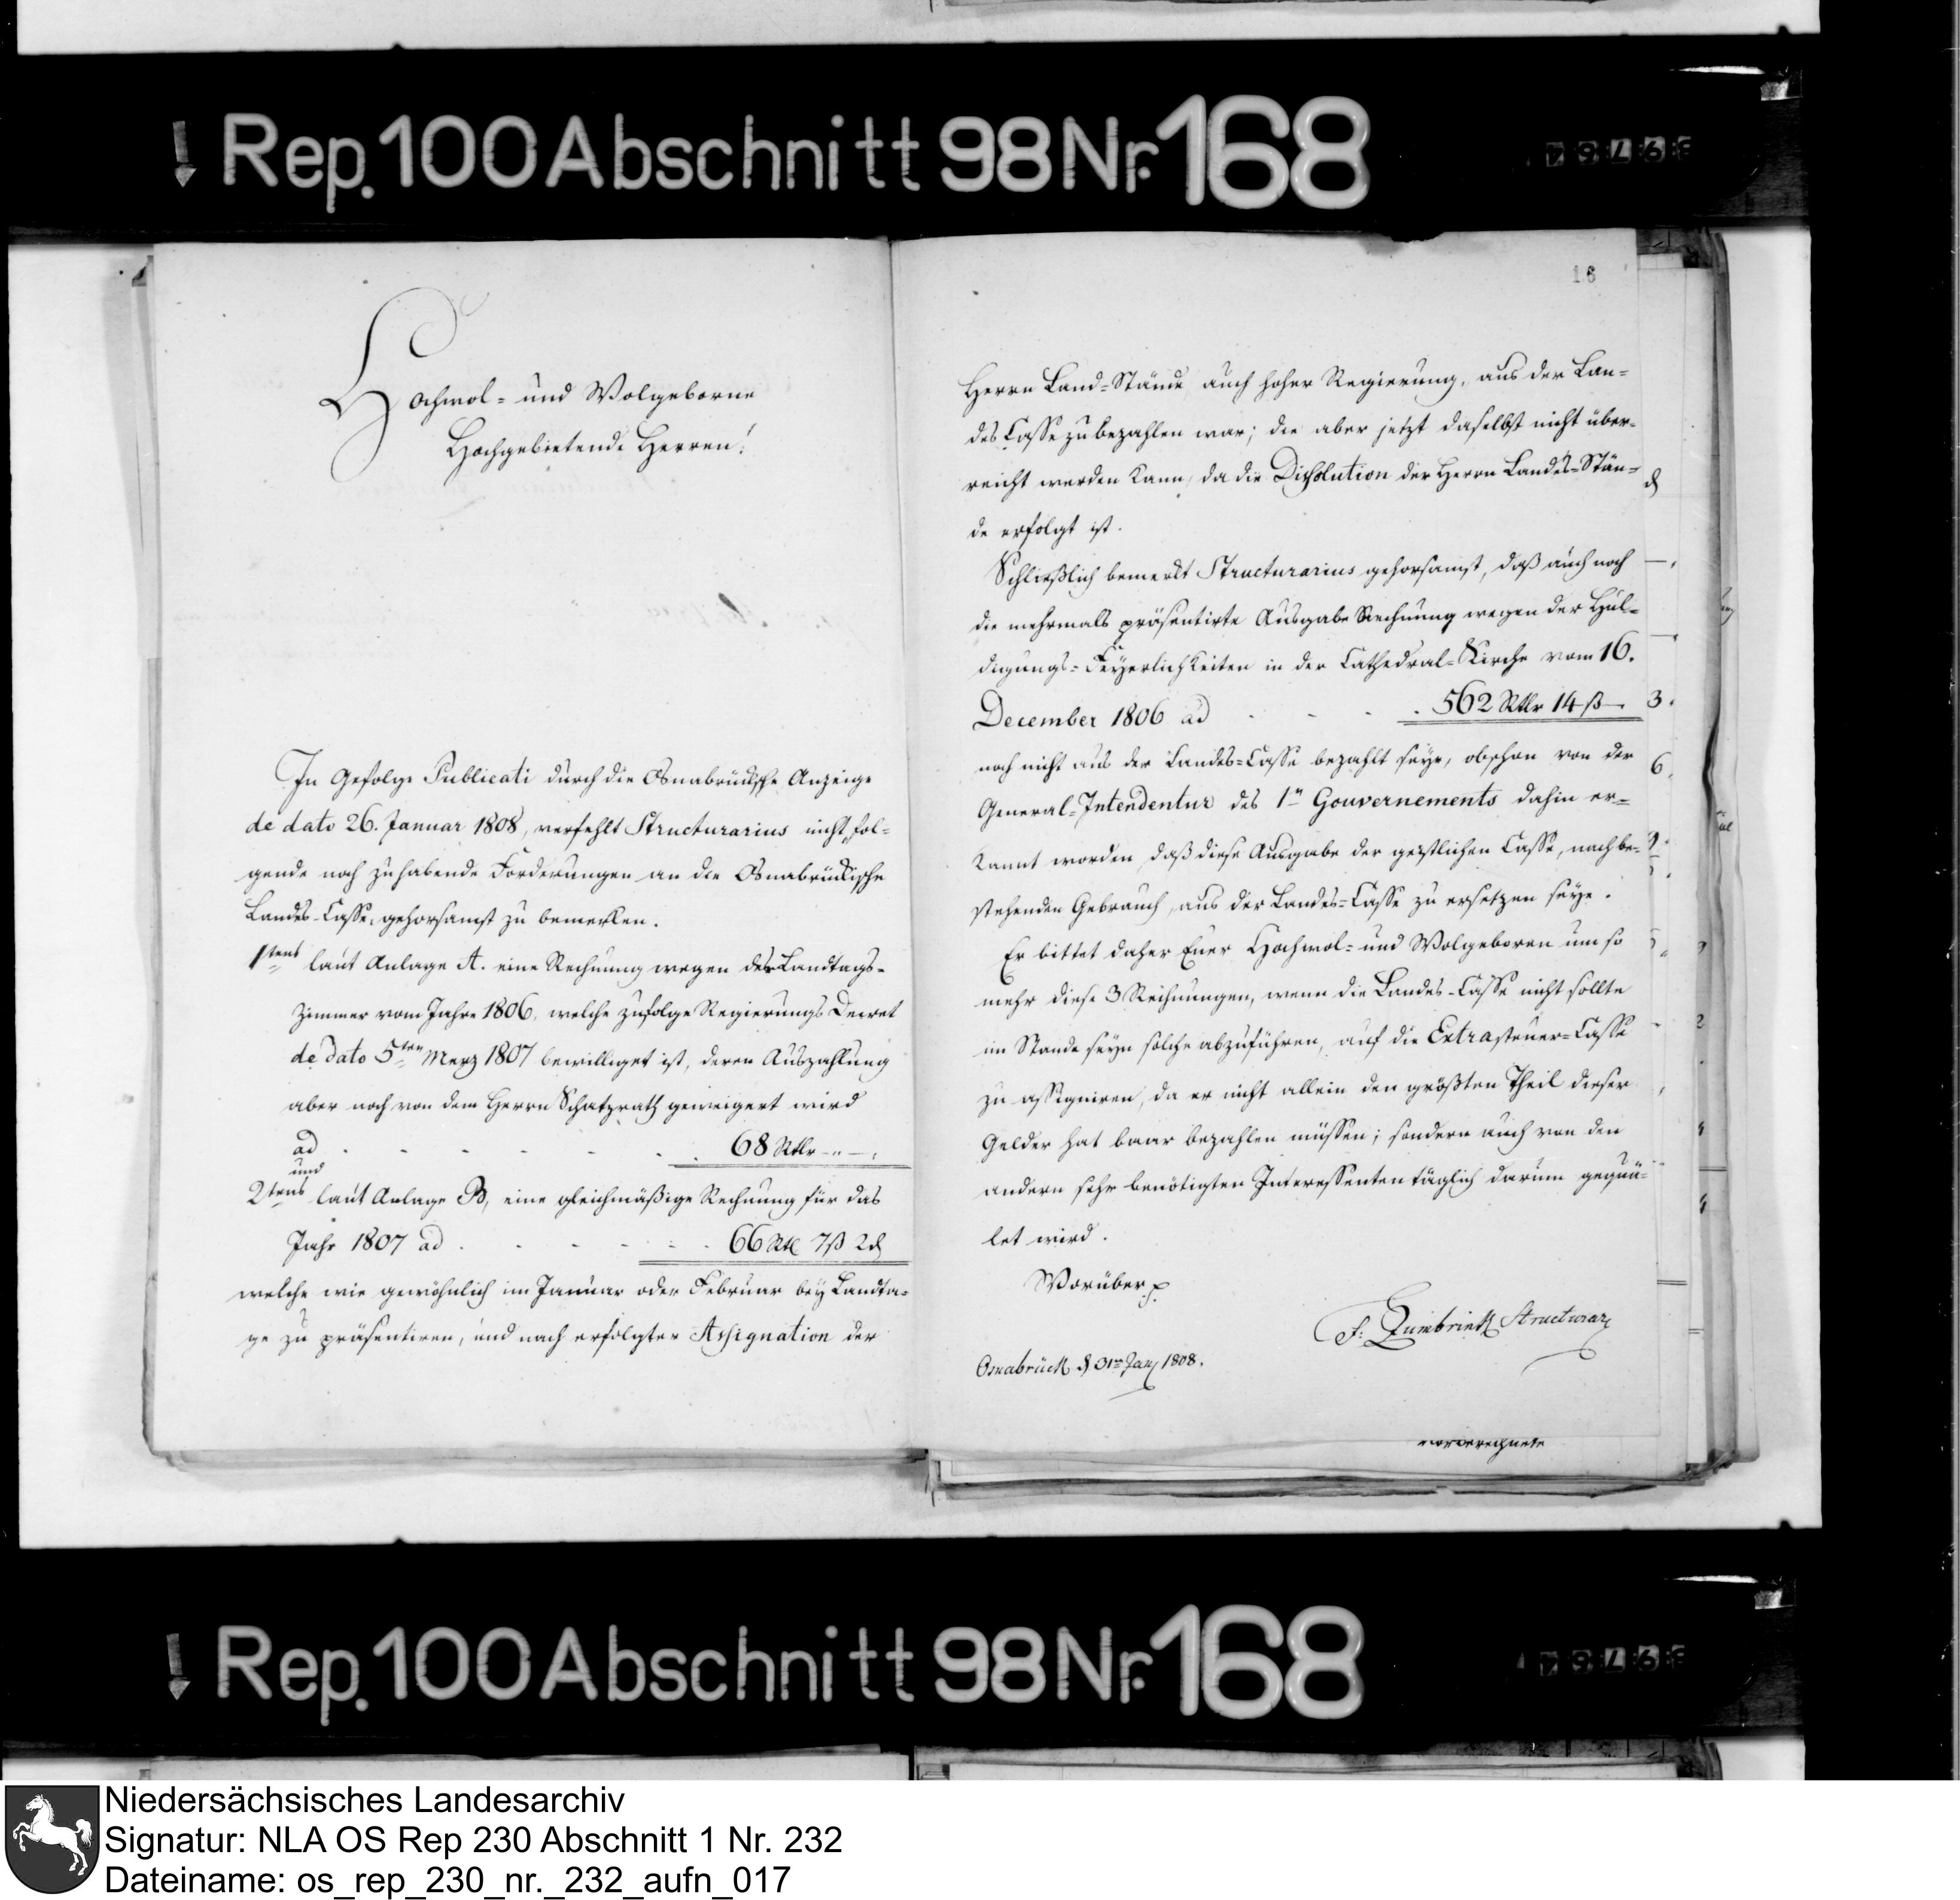 Rep. 100 Abschnitt 98 Nr. 168
Hochwol- und Wolgeborne
Hochgebietende Herren!
In Gefolge Publicati durch die Osnabrücksche Anzeige
de dato 26. Januar 1808, verfehlt Structurarius nicht, fol=
gende noch zu habende Forderungen an die Osnabrückische
Landes-Casse, gehorsamst zu bemerken.
1tens laut Anlage A. eine Rechnung wegen der Landtags-
Zimmer vom Jahre 1806, welche zufolge Regierungs Decret
de dato 5ten Merz 1807 bewilliget ist, deren Auszahlung
aber noch von dem Herrn Schatzrath geweigert wird
ad - - - - - - 68 Rtlr - " - .
und
2tens laut Anlage B, eine gleichmäßige Rechnung für das
Jahr 1807 ad . - - - - - . 66 Rtl 7ß 2d
welche wie gewöhnlich im Januar oder Februar bey Landta=
ge zu präsentiren, und nach erfolgter Assignation der
16
Herrn Land=Stände auch hoher Regierung, aus der Lan=
des Casse zu bezahlen war; die aber jetzt daselbst nicht über=
reicht werden kann, da die Dissolution der Herrn Landes=Stän=
de erfolgt ist.
Schließlich bemerkt Structurarius gehorsamst, daß auch noch
die mehrmals präsentirte Ausgabe Rechnung wegen der Hul=
digungs=Feyerlichkeiten in der Cathedral=Kirche vom 16.
December 1806 ad - - - . 562 Rtlr 14 ß -.
noch nicht aus der Landes=Casse bezahlt seye, obschon von der
General=Intendentur des 1n Gouvernements dahin er=
kannt worden, daß diese Ausgabe der geistlichen Casse, nach be=
stehenden Gebrauch, aus der Landes=Casse zu ersetzen seye.
Er bittet daher Euer Hochwol= und Wolgeboren um so
mehr diese 3 Rechnungen, wenn die Landes-Casse nicht sollte
im Stande seyn solche abzuführen, auf die Extrasteuer=Casse
zu assigniren, da er nicht allein den größten Theil dieser
Gelder hat baar bezahlen müssen; sondern auch von den
andern sehr benötigten Interessenten täglich darum gequä=
let wird.
Worüber p
F: Zumbrink Structurar
Osnabrück d 31n Jan 1808.
vorberechnete
Rep. 100 Abschnitt 98 Nr. 168
Niedersächsisches Landesarchiv
Signatur: NLA OS Rep 230 Abschnitt 1 Nr. 232
Dateiname: os_rep_230_nr._232_aufn_017